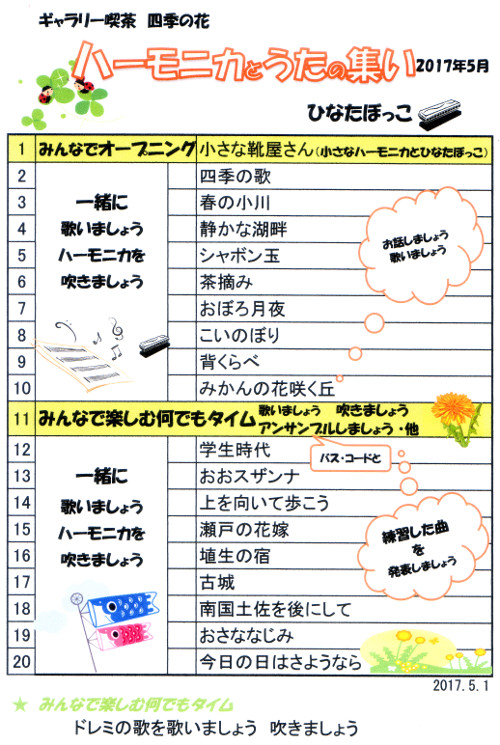 ギャラリー喫茶 四季の花
ハーモニカとうたの集い 2017年5月
ひなたぼっこ
1 みんなでオープニング 小さな靴屋さん(小さなハーモニカとひなたぼっこ)
2 四季の歌
3 春の小川
4 静かな湖畔
5 シャボン玉
6 茶摘み
7 おぼろ月夜
8 こいのぼり
9 背くらべ
10 みかんの花咲く丘
一緒に
歌いましょう
ハーモニカを
吹きましょう
お話しましょう
歌いましょう
11 みんなで楽しむ何でもタイム 歌いましょう 吹きましょう
アンサンブルしましょう・他
バス・コードと
12 学生時代
13 おおスザンナ
14 上を向いて歩こう
15 瀬戸の花嫁
16 埴生の宿
17 古城
18 南国土佐を後にして
19 おさななじみ
20 今日の日はさようなら
一緒に
歌いましょう
ハーモニカを
吹きましょう
練習した曲
を
発表しましょう
2017.5.1
★ みんなで楽しむ何でもタイム
ドレミの歌を歌いましょう 吹きましょう